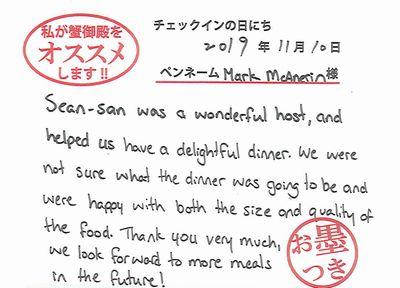 私が蟹御殿を
オススメ
します!!
チェックインの日にち
2019年11月10日
ペンネーム Mark McAnerin様
Sean-san was a wonderful host, and
helped us have a delightful dinner. We were
not sure what the dinner was going to be and
were happy with both the size and quality of
the food. Thank you very much,
we look forward to more meals
in the future!
お墨つき